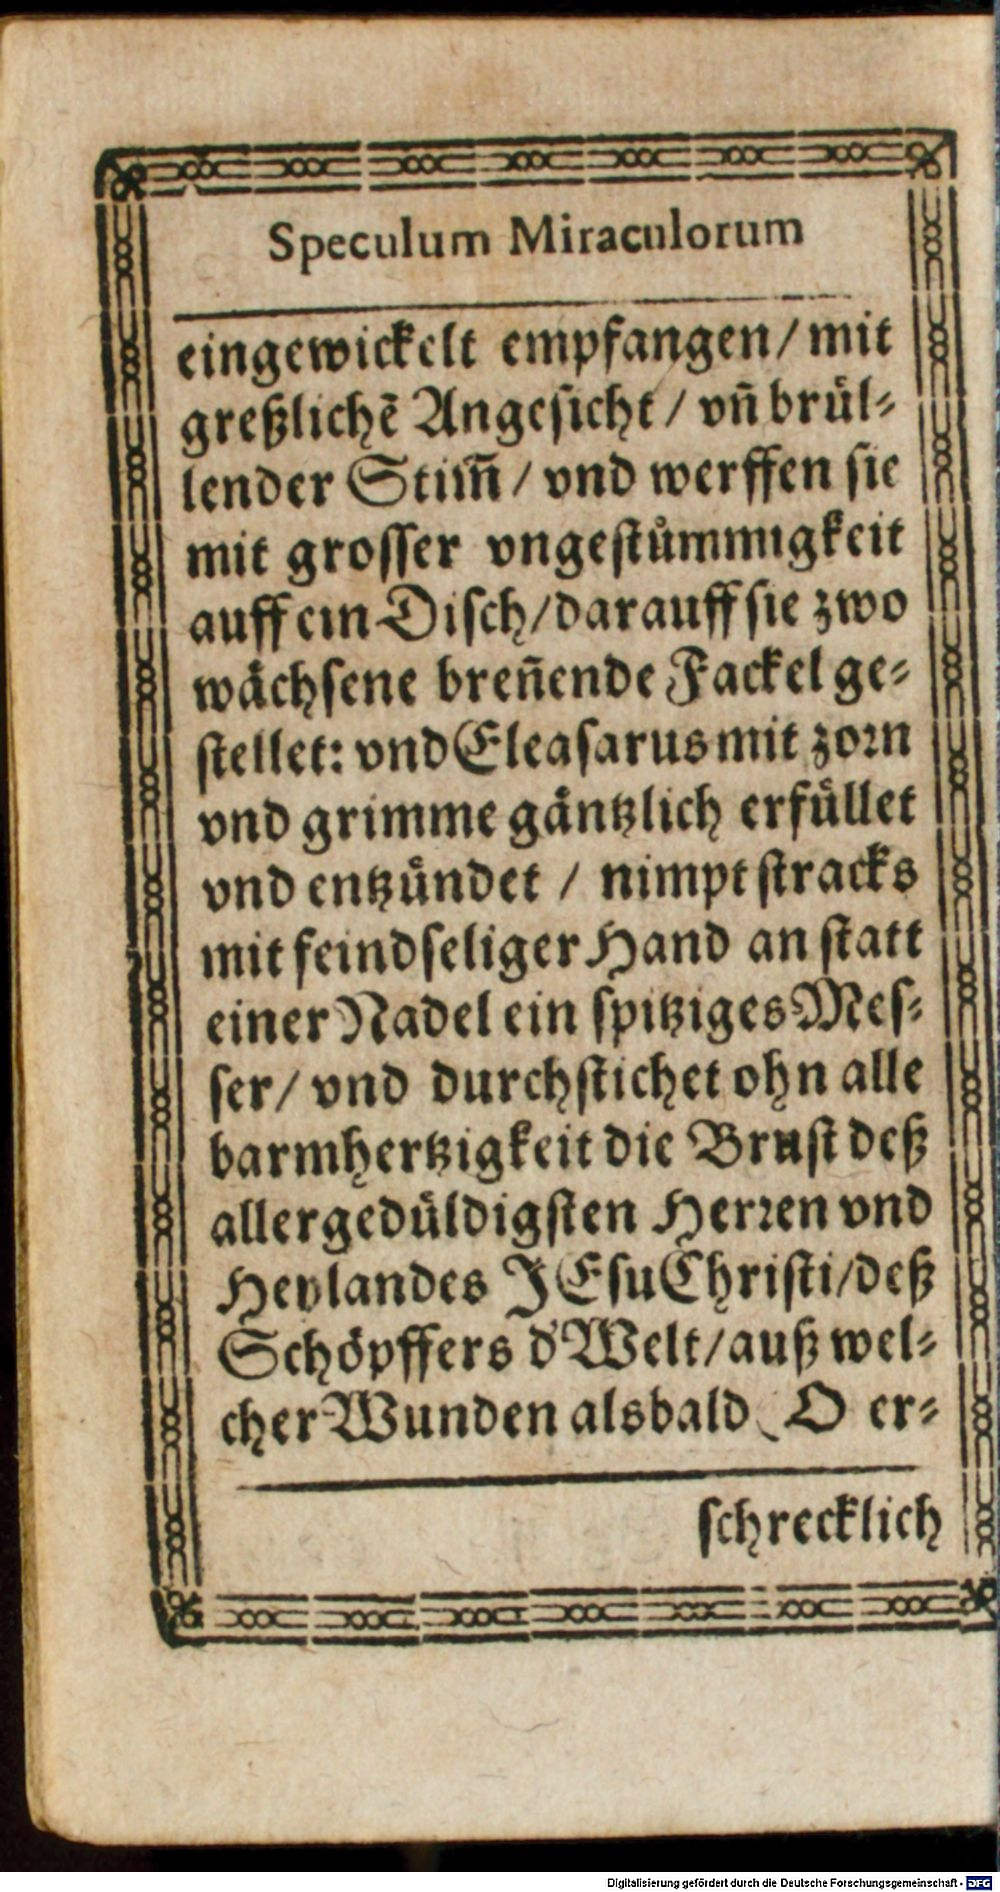 Speculum Miraculorum
eingewickelt empfangen/ mit
greßlichẽ Angesicht/ vñ brül-
lender Stim̃/ vnd werffen sie
mit grosser vngestümmigkeit
auff ein Disch/ darauff sie zwo
wächsene breñende Fackel ge-
stellet: vnd Eleasarus mit zorn
vnd grimme gäntzlich erfüllet
vnd entzündet / nimpt stracks
mit feindseliger Hand an statt
einer Nadel ein spitziges Mes-
ser/ vnd durchstichet ohn alle
barmhertzigkeit die Brust deß
allergedüldigsten Herren vnd
Heylandes JEsu Christi/ deß
Schöpffers d' Welt/ auß wel-
cher Wunden alsbald (O er-
schrecklich
Digitalisierung gefördert durch die Deutsche Forschungsgemeinschaft - DFG